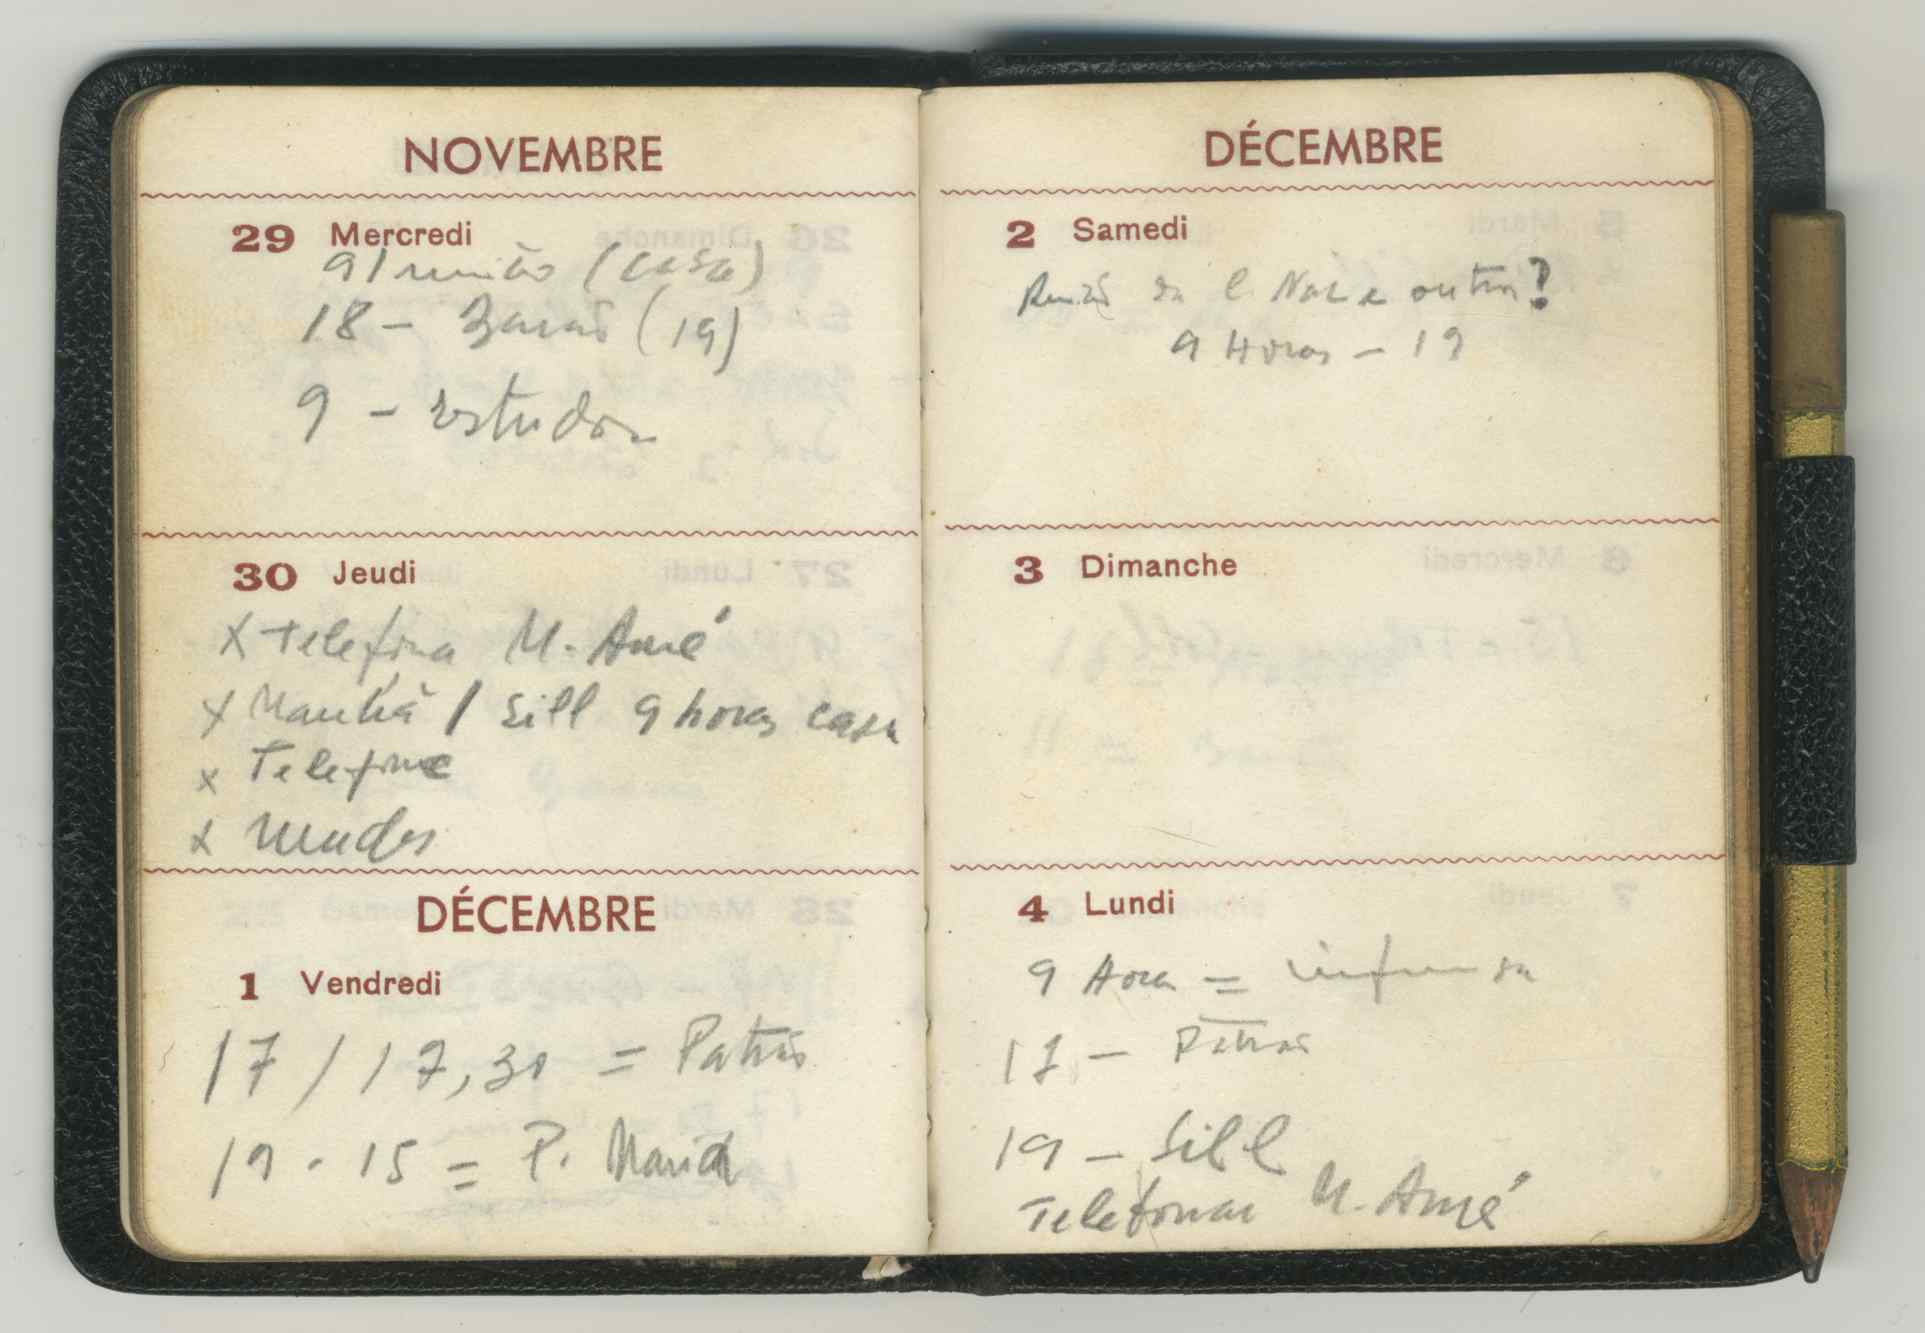 NOVEMBRE
29 Mercredi
9 / reunião (casa)
18 - (19)
9 - estudos
30 Jeudi
x Telefona M. Amé
x Manhã / Sill 9 horas casa
x Telefone
x
DÉCEMBRE
1 Vendredi
17 / 17,30 = Patrão
19 - 15 = P. Maria
DÉCEMBRE
2 Samedi
da e outros?
9 Horas - 19
3 Dimanche
4 Lundi
9 Hora =
17 - Patrão
19 - Sill
Telefonar M. Amé